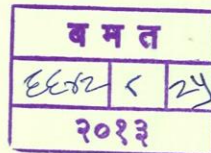 ब म त
६६४२ ८ २५
२०१३